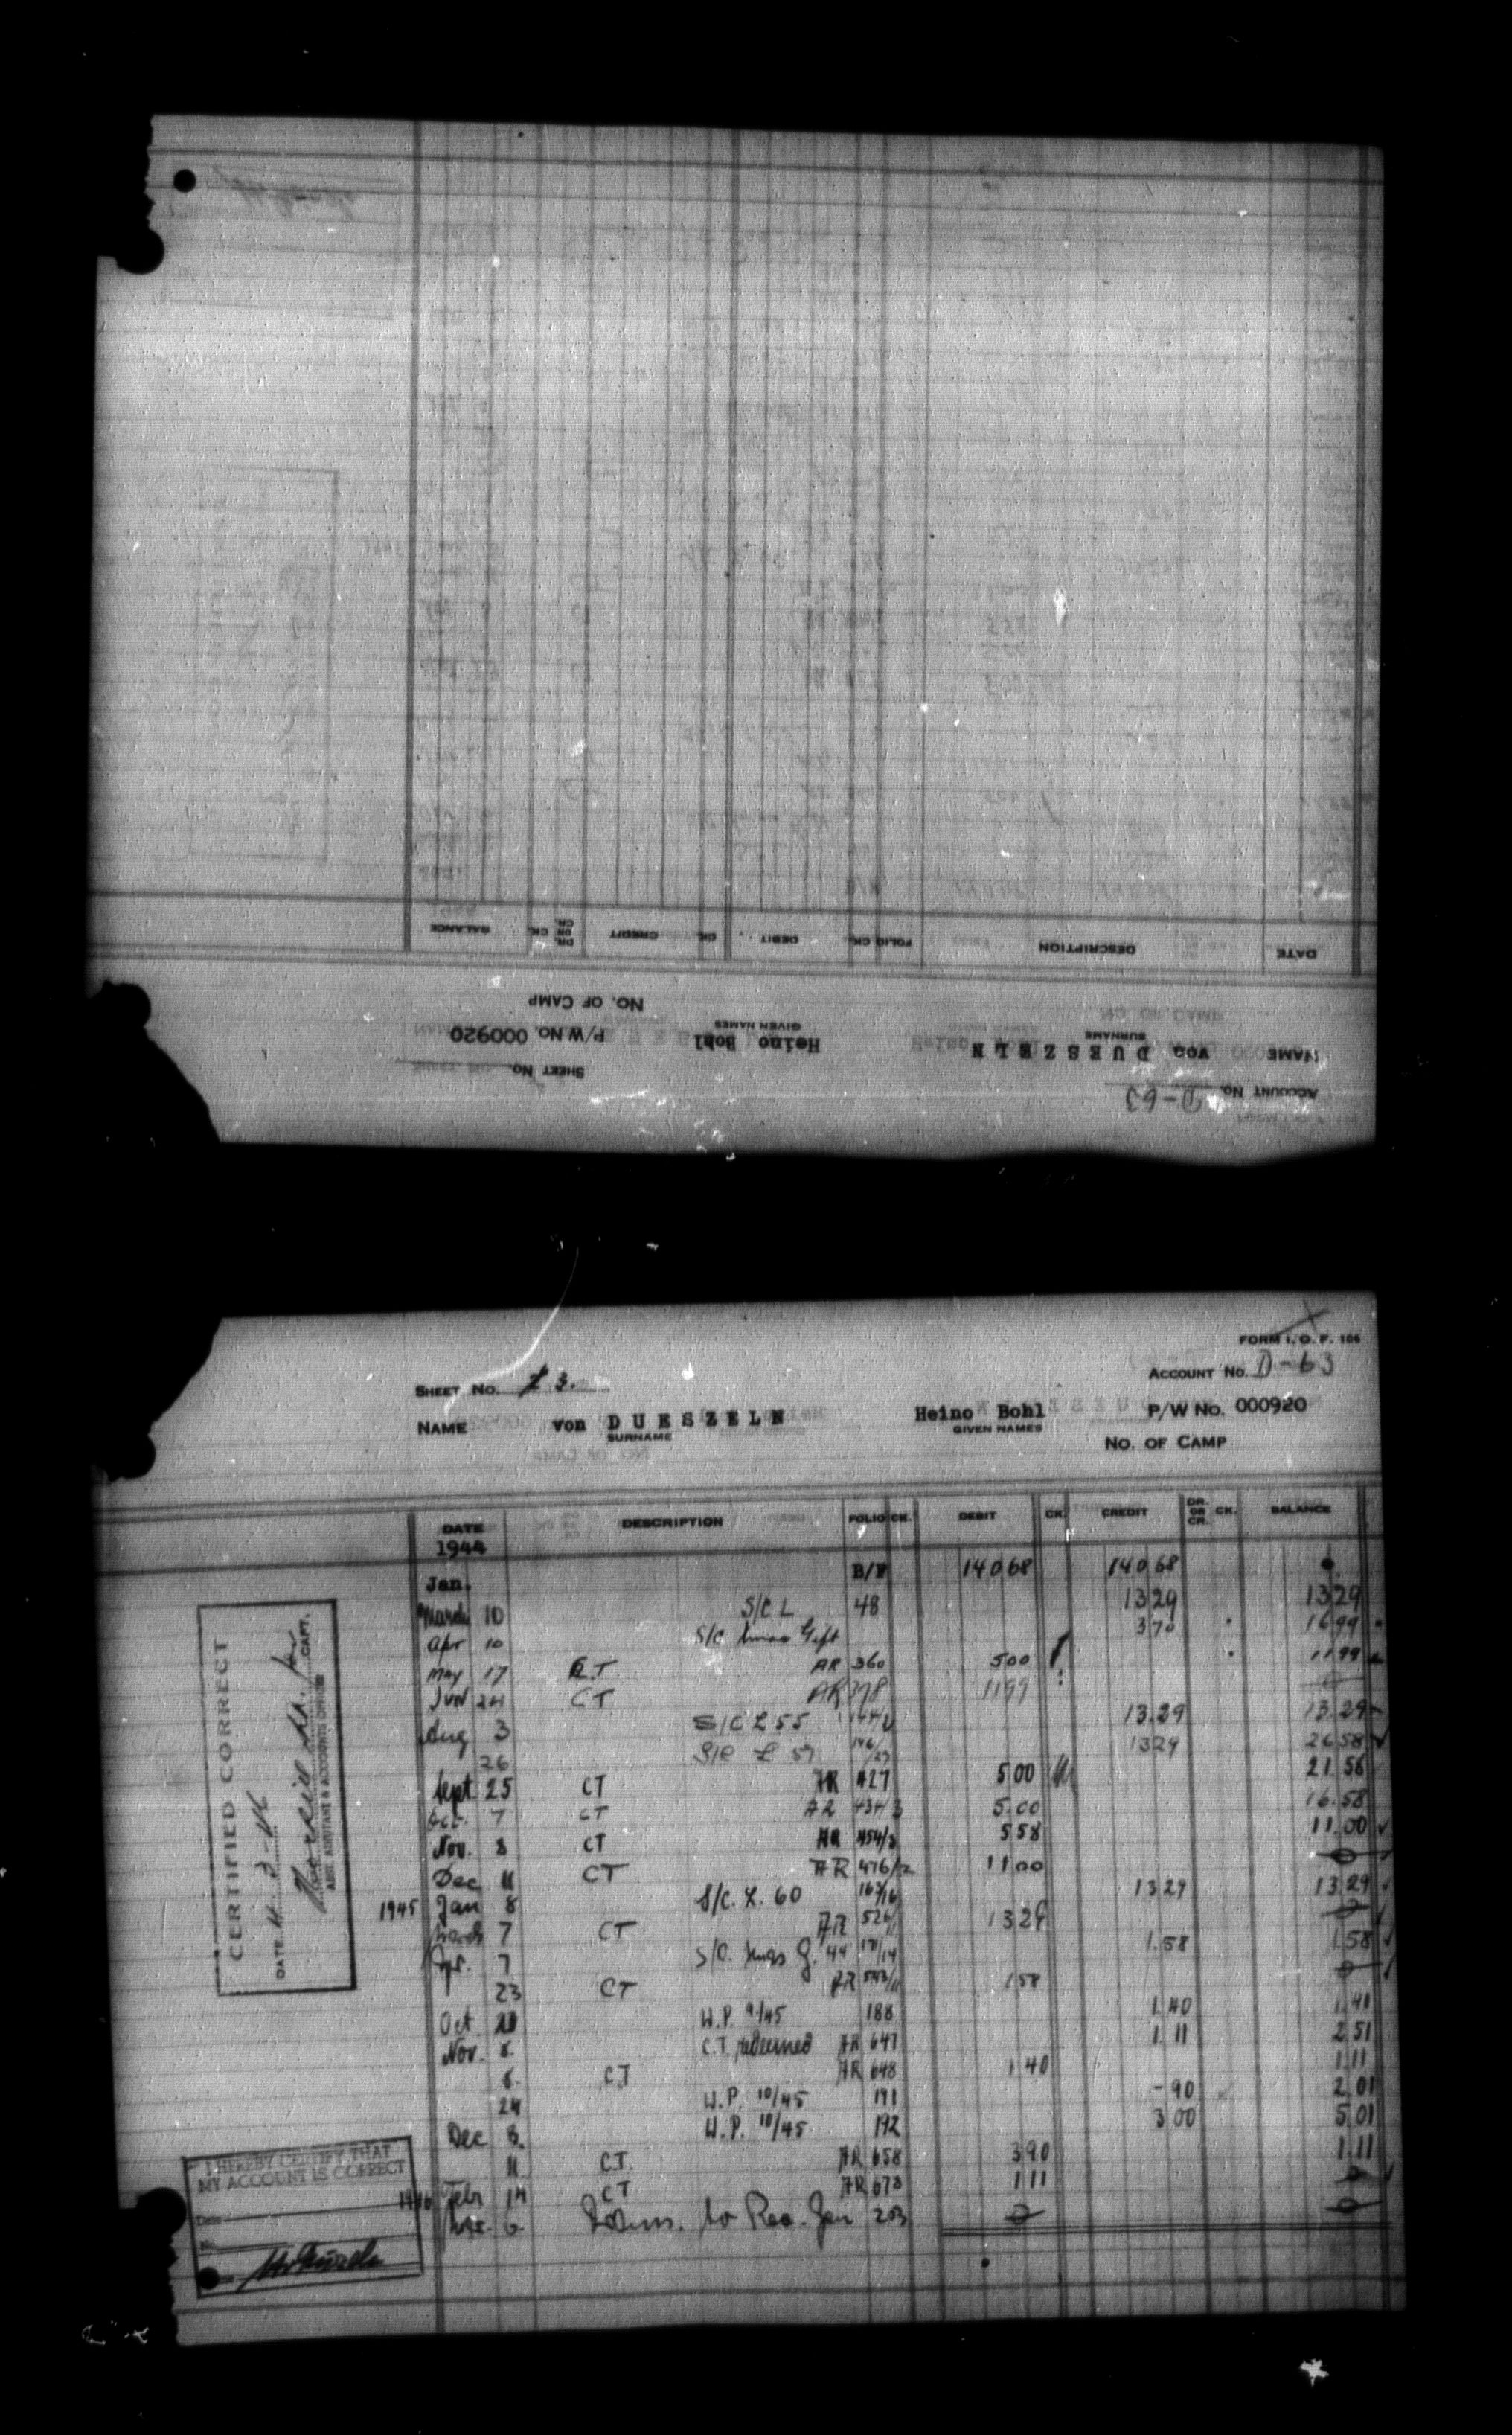 DATE DESCRIPTION FOLIO CK. DEBIT CK. CREDIT DR. OR CR. CK. BALANCE
NO. OF CAMP
NAME von DUESZELN Heino Bohl P/W No. 000920
SURNAME GIVEN NAMES
SHEET No.
ACCOUNT No. D-63
FORM I.O.F. 106
SHEET No. 3. ACCOUNT No. D-63
NAME von DUESZELN Heino Bohl P/W No. 000920
SURNAME GIVEN NAMES
NO. OF CAMP
DATE DESCRIPTION FOLIO CK. DEBIT CK. CREDIT DR. OR CR. CK. BALANCE
1944
Jan. B/F 140 68 140 68
March 10 S/C L 48 13 29 13 29
Apr 10 S/C Xmas Gift 3 70 16 99
May 17 CT AR 360 5 00 11 99
Jun 24 CT AR 398 11 99
Aug 3 S/C L 55 13.29 13.29
26 S/C L 59 13 29 26 58
Sept 25 CT AR 427 5 00 21.58
Oct. 7 CT AR 434/3 5.00 16.58
Nov. 8 CT AR 454/3 5 58 11.00
Dec 11 CT AR 476/2 11 00
1945 Jan 8 S/C. L. 60 163/16 13 29 13.29
March 7 CT AR 526/1 13 29
Apr. 7 S/C. Xmas G. 44 1.58 1.58
23 CT AR 1 58
Oct. W.P. 9/45 188 1.40 1.41
Nov. 6. C.T. redeemed AR 647 1.11 2 51
6. CT AR 648 1 40 1.11
24 W.P. 10/45 191 -90 2.01
Dec 3. W.P. 10/45 192 3 00 5 01
11 C.T. AR 658 3 90 1.11
1946 Febr 14 CT AR 673 1 11
6 to Rec. Gen 203
CERTIFIED CORRECT
DATE
CAPT.
ASST. ADJUTANT & ACCOUNTS OFFICER
I HEREBY CERTIFY THAT
MY ACCOUNT IS CORRECT
Date
No.